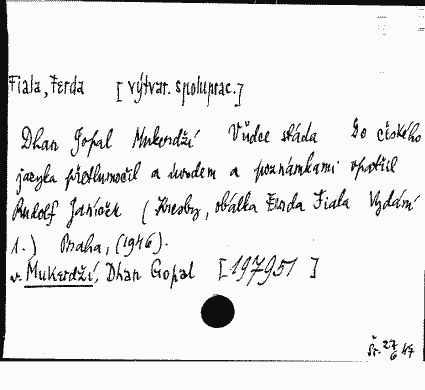 Fiala, Ferda [výtvar. spoluprac.]
Dhan Gopal Mukerdží Vůdce stáda Do českého
jazyka přetlumočil a úvodem a poznámkami opatřil
Rudolf Janíček (Kresby, obálka Ferda Fiala Vydání
1.) Praha, (1946).
v. Mukerdží, Dhan Gopal [197951]
Šr. 27/6 47